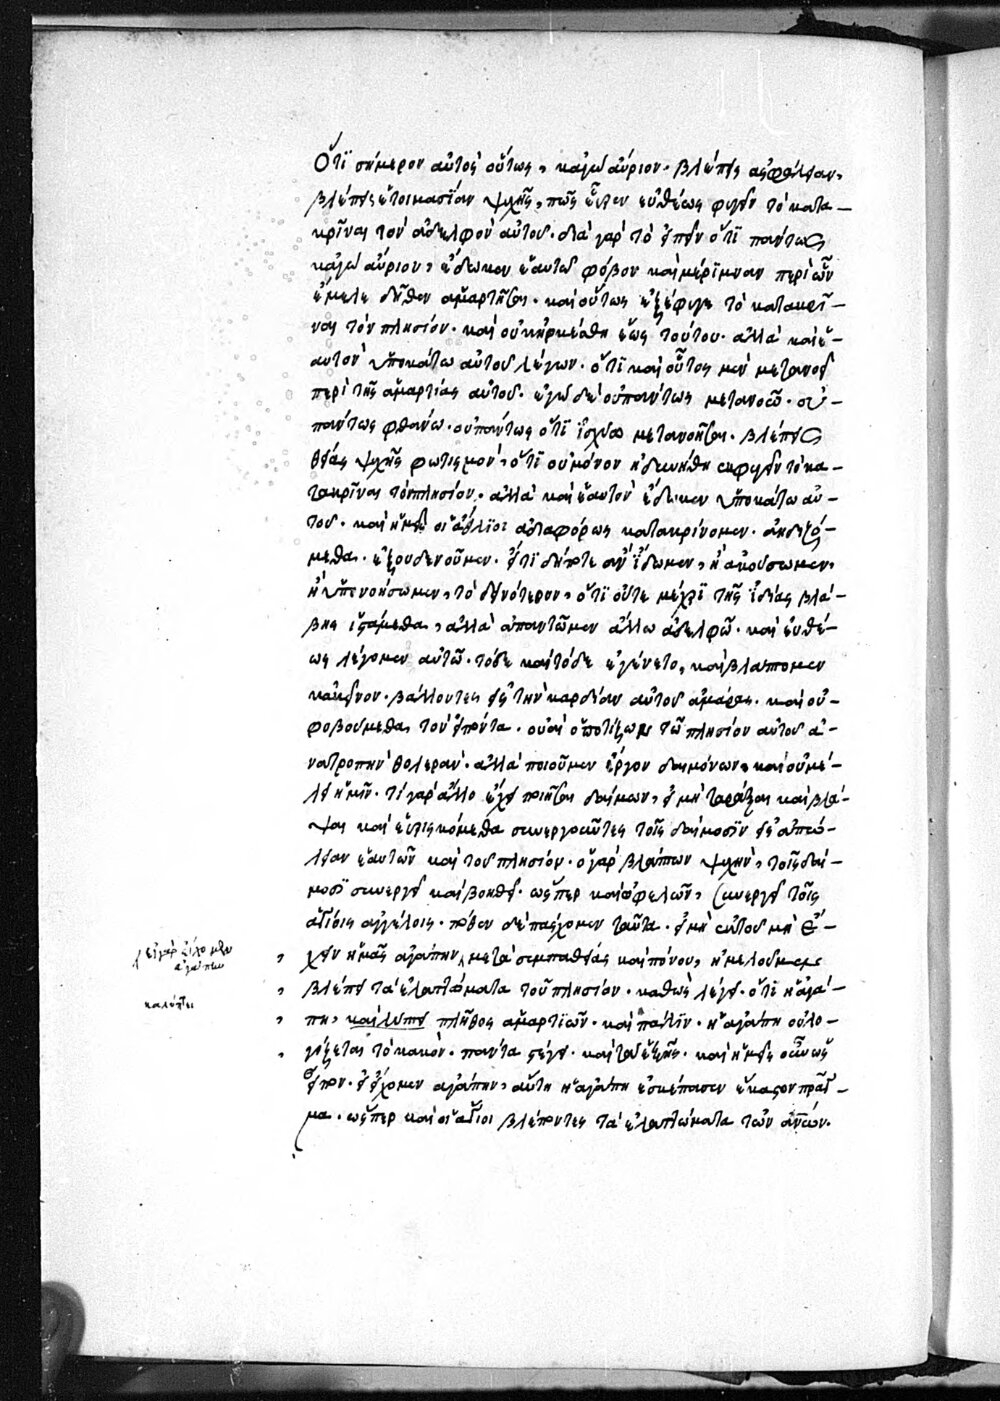 Ὅτι σήμερον αὐτὸς οὕτως, κἀγὼ αὔριον. βλέπεις ἀσφάλειαν,
βλέπεις ἑτοιμασίαν ψυχῆς, πῶς εὗρεν εὐθέως φυγεῖν τὸ κατα-
κρῖναι τὸν ἀδελφὸν αὐτοῦ. διὰ γὰρ τὸ εἰπεῖν ὅτι πάντως
κἀγὼ αὔριον, ἔδωκεν ἑαυτῷ φόβον καὶ μέριμναν περὶ ὧν
ἔμελε δῆθεν ἁμαρτῆσαι. καὶ οὕτως ἐξέφυγε τὸ κατακρῖ-
ναι τὸν πλησίον. καὶ οὐκ ἠρκέσθη ἕως τούτου. ἀλλὰ καὶ ἑ-
αυτὸν ὑποκάτω αὐτοῦ λέγων. ὅτι καὶ οὗτος μὲν μετανοεῖ
περὶ τῆς ἁμαρτίας αὐτοῦ. ἐγὼ δὲ οὐ πάντως μετανοῶ. οὐ
πάντως φθάνω. οὐ πάντως ὅτι ἰσχύω μετανοῆσαι. βλέπεις
θείας ψυχῆς φωτισμόν, ὅτι οὐ μόνον ἠδυνήθη ἐκφυγεῖν τὸ κα-
τακρῖναι τὸν πλησίον. ἀλλὰ καὶ ἑαυτὸν ἔδωκεν ὑποκάτω αὐ-
τοῦ. καὶ ἡμεῖς οἱ ἄθλιοι ἀδιαφόρως κατακρίνομεν. ἀηδιζό-
μεθα. ἐξουδενοῦμεν. εἴ τι δήποτε ἂν ἴδωμεν, ἢ ἀκούσωμεν,
ἢ ὑπενοήσωμεν, τὸ δεινότερον, ὅτι οὔτε μέχρι τῆς ἰδίας βλά-
βης ἱστάμεθα, ἀλλὰ ἀπαντῶμεν ἄλλω ἀδελφῶ. καὶ εὐθέ-
ως λέγομεν αὐτῶ. τόδε καὶ τόδε ἐγένετο, καὶ βλάπτομεν
κἀκεῖνον. βάλλοντες εἰς τὴν καρδίαν αὐτοῦ ἁμαρτίας. καὶ οὐ
φοβούμεθα τὸν εἰπόντα. οὐαὶ ὁ ποτίζων τῶ πλησίον αὐτοῦ ἀ-
νατροπὴν θολεράν. ἀλλὰ ποιοῦμεν ἔργον δαιμόνων, καὶ οὐ μέ-
λει ἡμῖν. τί γὰρ ἄλλο ἔχει ποιῆσαι δαίμων, εἰ μὴ ταράξαι καὶ βλά-
ψαι καὶ εὑρισκόμεθα συνεργοῦντες τοῖς δαίμοσιν εἰς ἀπώ-
λειαν ἑαυτῶν καὶ τοῦ πλησίον. ὁ γὰρ βλάπτων ψυχήν, τοῖς δαί-
μοσι συνεργεῖ καὶ βοηθεῖ. ὥσπερ καὶ ὁ ὠφελῶν, συνεργεῖ τοῖς
ἁγίοις ἀγγέλοις. πόθεν δὲ πάσχομεν ταῦτα. εἰ μὴ ἐκ τοῦ μὴ ἔ-
χειν ἡμᾶς ἀγάπην, μετὰ συμπαθείας καὶ πόνου,
βλέπειν τὰ ἐλαττώματα τοῦ πλησίον. καθὼς λέγει. ὅτι ἡ ἀγά-
πη, καλύπτει πλῆθος ἁμαρτιῶν. καὶ πάλιν. ἡ ἀγάπη οὐ λο-
γίζεται τὸ κακόν. πάντα στέγει. καὶ τὰ ἑξῆς. καὶ ἡμεῖς οὖν ὡς
εἶπον. εἰ εἴχομεν ἀγάπην, αὕτη ἡ ἀγάπη ἐσκέπασεν ἕκαστον πρᾶγ-
μα. ὥσπερ καὶ οἱ ἅγιοι βλέποντες τὰ ἐλαττώματα τῶν ἀνων.
εἰ γὰρ εἴχομεν
ἀγάπην
καλύπτει